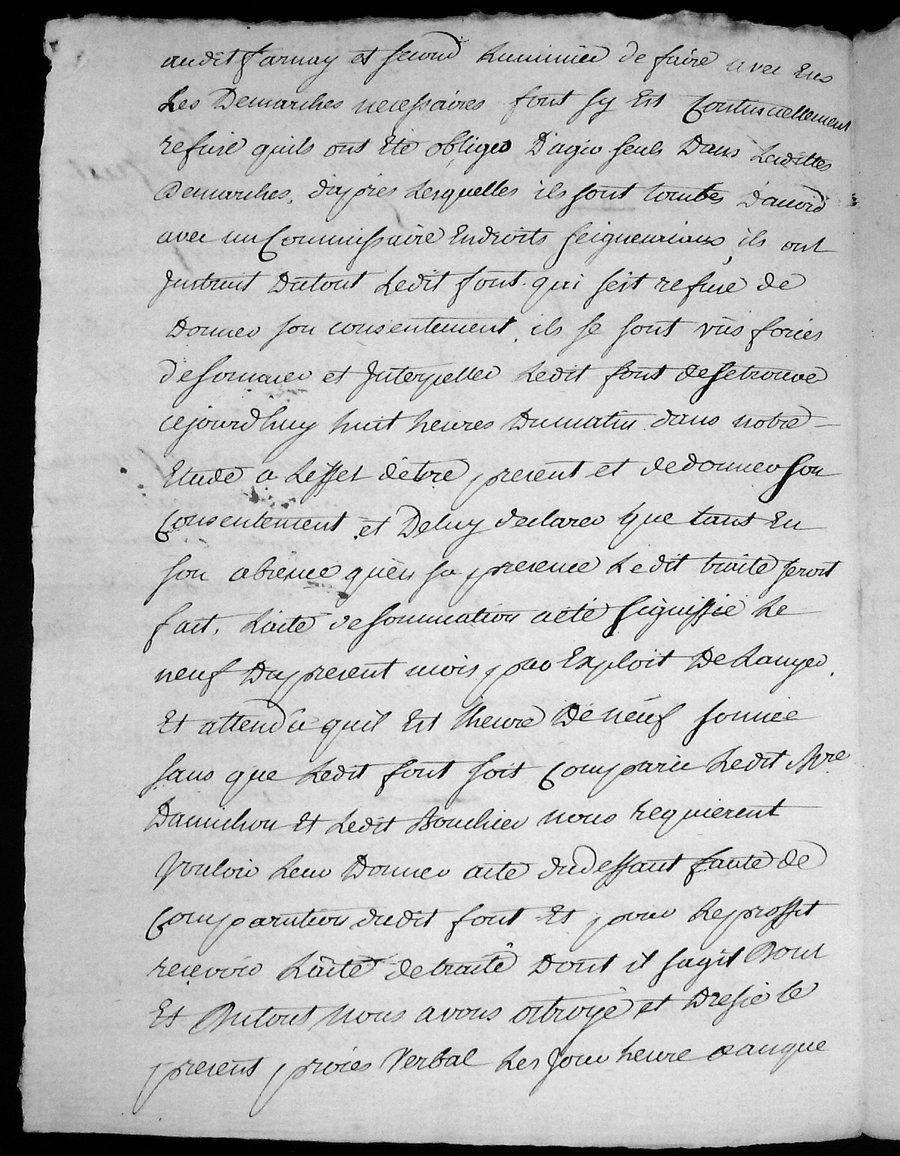 audit farnay et second Luminier de faire avec Eux
Les Demarches necessaires font sy Est Continuellement
refusé quils ont Eté obligés D'agir seuls Dans Lesdittes
Demarches, d'apres Lesquelles ils sont tombés D'accord
avec un Commissaire En droits seigneuriaux, ils ont
Instruit Dutout Ledit font qui sest refusé de
Donner son consentement, ils se sont vûs forcés
de sommer et Interpeller Ledit font de se trouver
cejourdhuy huit heures Du matin dans notre
Etude a Leffet dêtre present et de donner son
Consentement et De luy declarer que tant En
son absence quén sa presence Ledit traité seroit
fait, Lacte de sommation a eté signiffié Le
neuf Du present mois par Exploit De
Et attendû quil Est lheure De neuf sonnée
sans que Ledit font soit Comparu Ledit Mre
Danuhon Et Ledit Bouchier nous requierent
Vouloir Leur Donner acte du deffaut faute de
Comparution dudit font Et pour Le proffit
recevoir Lacte de traité Dont il sagit Dont
Et Dutout Nous avons octroyé et Dressé le
present proces Verbal Les Jour heure et an que